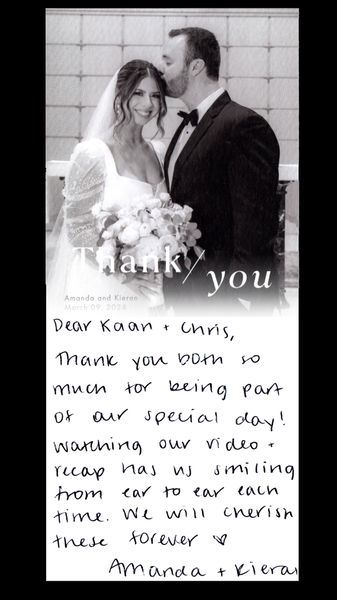 Thank you
Amanda and Kieran
March 09, 2024
Dear Kaan + Chris,
Thank you both so
much for being part
of our special day!
Watching our video +
recap has us smiling
from ear to ear each
time. We will cherish
these forever ♡
Amanda + Kieran